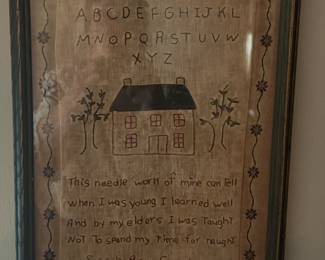 ABCDEFGHIJKL
MNOPQRSTUVW
XYZ
This needle work of mine can tell
When I was young I learned well
And by my elders I was Taught
Not To Spend my time for naught